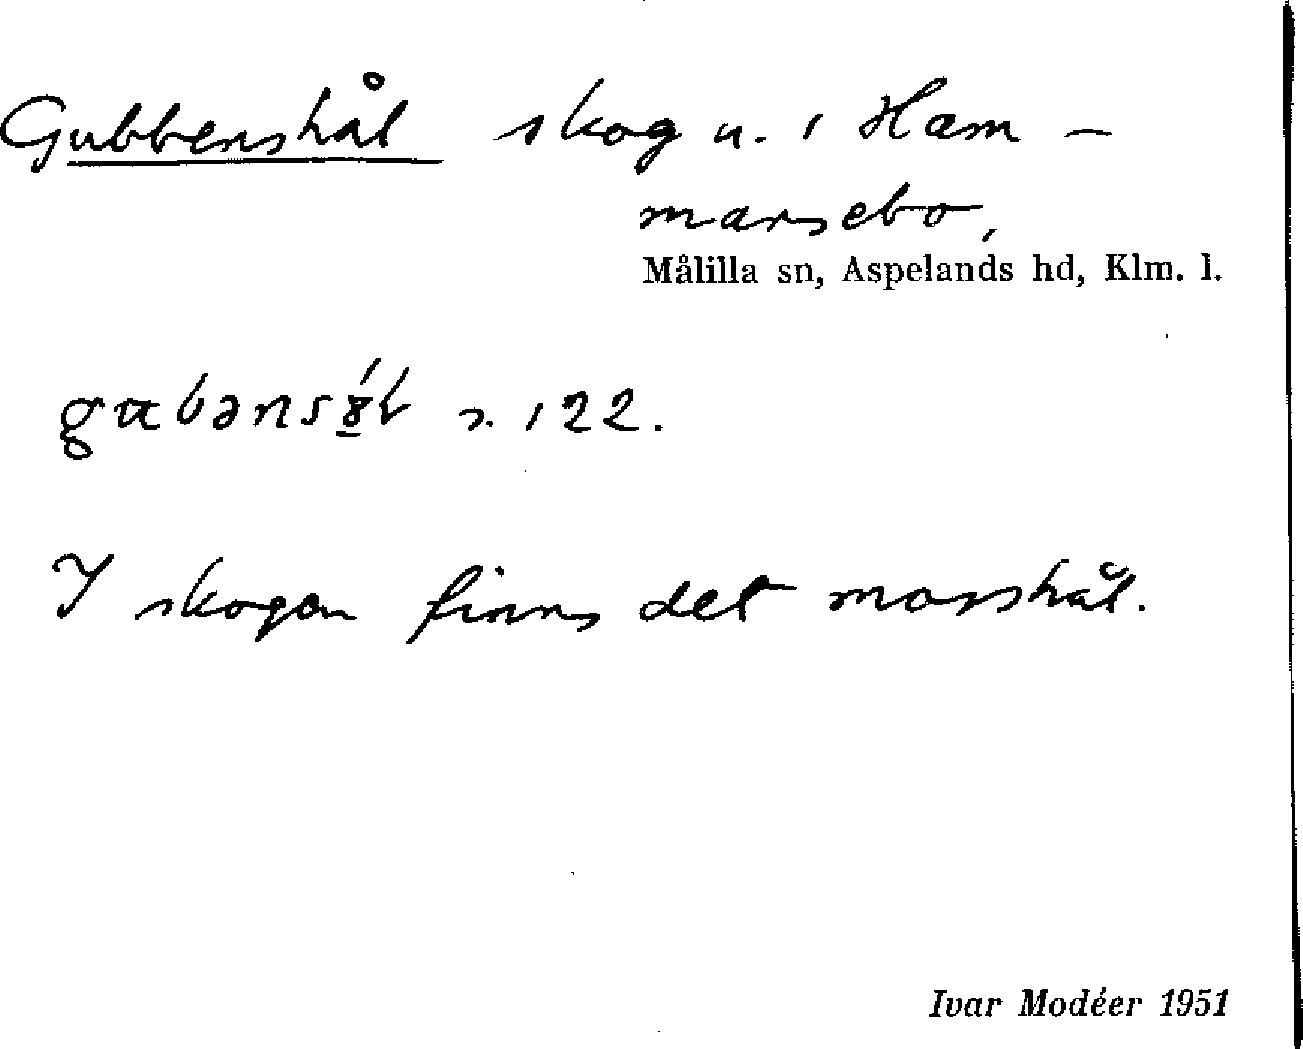 Gubbenshål skog u. 1 Ham-
marsebo,
Målilla sn, Aspelands hd, Klm. l.
s. 122.
I skogen finns det mosshål.
Ivar Modéer 1951